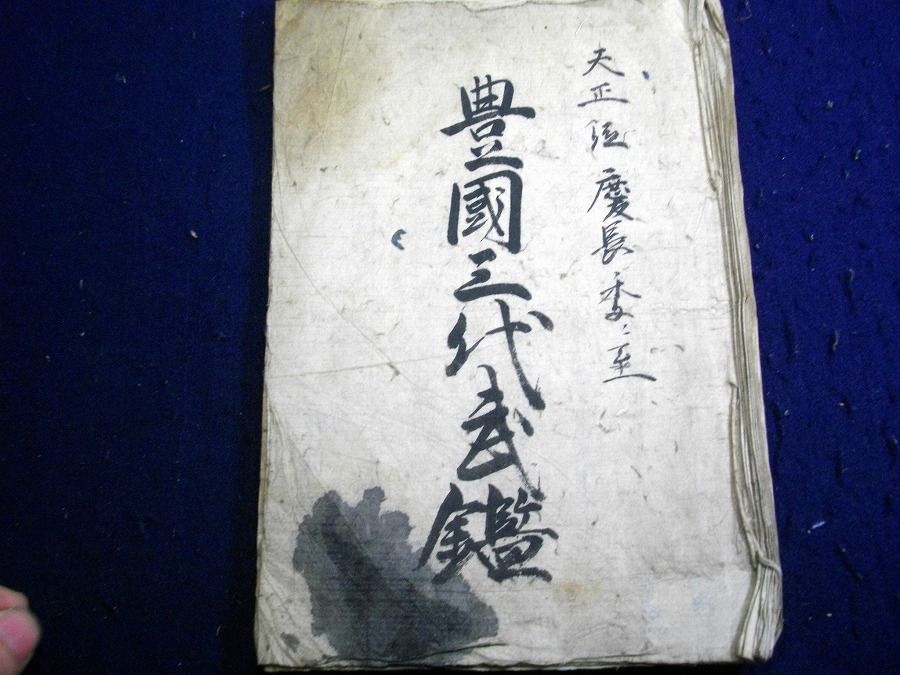 天正従慶長季ニ至
豊國三代武鑑